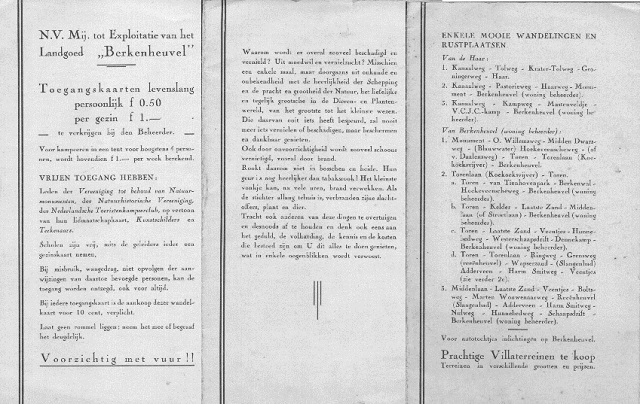 N.V. Mij. tot Exploitatie van het
Landgoed „Berkenheuvel"
Toegangskaarten levenslang
persoonlijk f 0.50
per gezin f 1.—
te verkrijgen bij den Beheerder.
Voor kampeeren in een tent voor hoogstens 4 personen, wordt bovendien f 1.— per week berekend.
VRIJEN TOEGANG HEBBEN:
Leden der Vereeniging tot behoud van Natuur-
monumenten, des Natuurhistorische Vereeniging,
des Nederlandsche Toeristenkampeerclub, op vertoon
van hun lidmaatschapkaart, Kunstschilders en
Teekenaars.
Scholen zijn vrij, mits de geleiders ieder een
gezinskaart nemen.
Bij misbruik, wangedrag, niet opvolgen der aan-
wijzingen van daartoe bevoegde personen, kan de
toegang worden ontzegd, ook voor altijd.
Bij iedere toegangskaart is de aankoop dezer wandel-
kaart voor 10 cent, verplicht.
Laat geen rommel liggen: neem het mee of begraaf
het deugdelijk.
Voorzichtig met vuur!!
Waarom wordt er overal zooveel beschadigd en
vernield? Uit moedwil en vernielzucht? Misschien
een enkele maal, maar doorgaans uit onkunde en
onbekendheid met de heerlijkheid der Schepping
en de pracht en grootheid der Natuur, het liefelijke
en tegelijk grootsche in de Dieren- en Planten-
wereld, van het grootste tot het kleinste wezen.
Die daarvan ooit iets heeft bespeurd, zal nooit
meer iets vernielen of beschadigen, maar beschermen
en dankbaar genieten.
Ook door onvoorzichtigheid wordt zooveel schoons
vernietigd, vooral door brand.
Rookt daarom niet in bosschen en heide. Hun
geur is nog heerlijker dan tabakswalm! Het kleinste
vonkje kan, na vele uren, brand verwekken. Als
de stichter allang tehuis is, verbranden zijne slacht-
offers, plant en dier.
Tracht ook anderen van deze dingen te overtuigen
en desnoods af te houden en denk ook eens aan
het geduld, de volharding, de kennis en de kosten
die besteed zijn om U dit alles te doen genieten,
wat in enkele oogenblikken wordt verwoest.
ENKELE MOOIE WANDELINGEN EN
RUSTPLAATSEN
Van de Haar:
1. Kanaalweg - Tolweg - Krater-Tolweg - Gro-
ningerweg - Haar.
2. Kanaalweg - Pastorieweg - Haarweg - Monu-
ment - Berkenheuvel (woning beheerder).
3. Kanaalweg - Kampweg - Mastenveldje -
V.C.J.C.-kamp - Berkenheuvel (woning be-
heerder).
Van Berkenheuvel (woning beheerder):
1. Monument - O. Willemsweg - Midden Dwars-
weg - (Blauwwater) Hoekenweg (of
v. Daalensweg) - Toren - Torenlaan (Koe-
koekvrijver) - Berkenheuvel.
2. Torenlaan (Koekoekvrijver) - Toren.
a. Toren - van Tienhovenpark - Berkenwal -
Berkenheuvel (woning
beheerder).
b. Toren - Kolder - Laatste Zand - Midden-
laan (of Sterrelaan) - Berkenheuvel (woning
beheerder).
c. Toren - Laatste Zand - Veentjes -
Westerschaapsdrift - Dennekamp -
Berkenheuvel (woning beheerder).
d. Toren - Torenlaan - Bangweg - Grensweg
- Wapserzand - (Slangenbad)
Adderveen - Harm Smitweg - Veentjes
(zie verder 2c).
3. Middenlaan - Laatste Zand - Veentjes - Bolts-
weg - Marten Wouwenaarweg -
(Slangenbad) - Adderveen - Harm Smitweg -
Nulweg - Hunnebedweg - Schaapsdrift -
Berkenheuvel (woning beheerder).
Voor autotochtjes inlichtingen op Berkenheuvel.
Prachtige Villaterreinen te koop
Terreinen in verschillende grootten en prijzen.